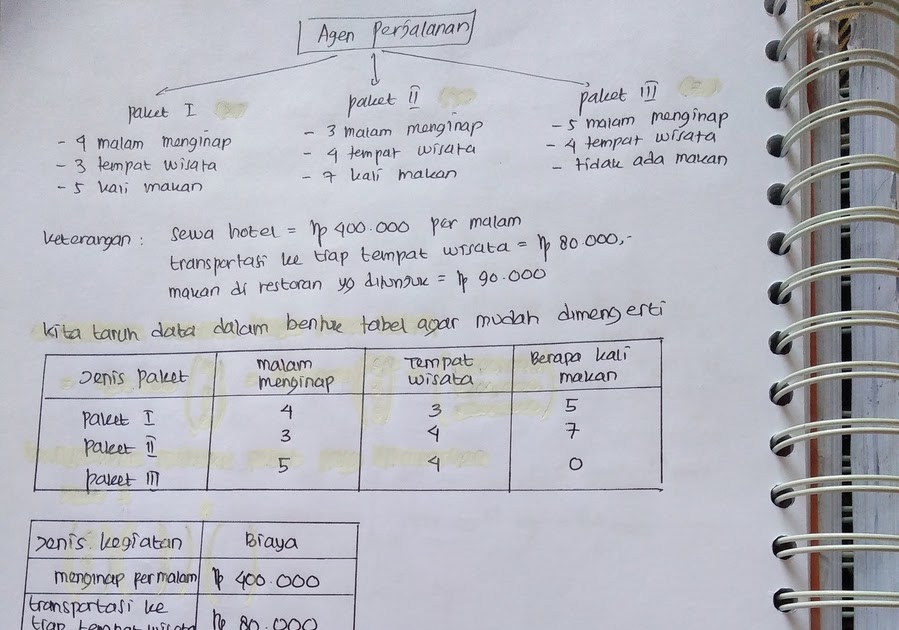 Agen Perjalanan
paket I
- 4 malam menginap
- 3 tempat wisata
- 5 kali makan
paket II
- 3 malam menginap
- 4 tempat wisata
- 7 kali makan
paket III
- 5 malam menginap
- 4 tempat wisata
- tidak ada makan
keterangan : sewa hotel = Rp 400.000 per malam
transportasi ke tiap tempat wisata = Rp 80.000,-
makan di restoran yg ditunjuk = Rp 90.000
kita taruh data dalam bentuk tabel agar mudah dimengerti
Jenis paket malam menginap Tempat wisata Berapa kali makan
paket I 4 3 5
paket II 3 4 7
paket III 5 4 0
Jenis kegiatan Biaya
menginap per malam Rp 400.000
transportasi ke
tiap tempat wisata Rp 80.000